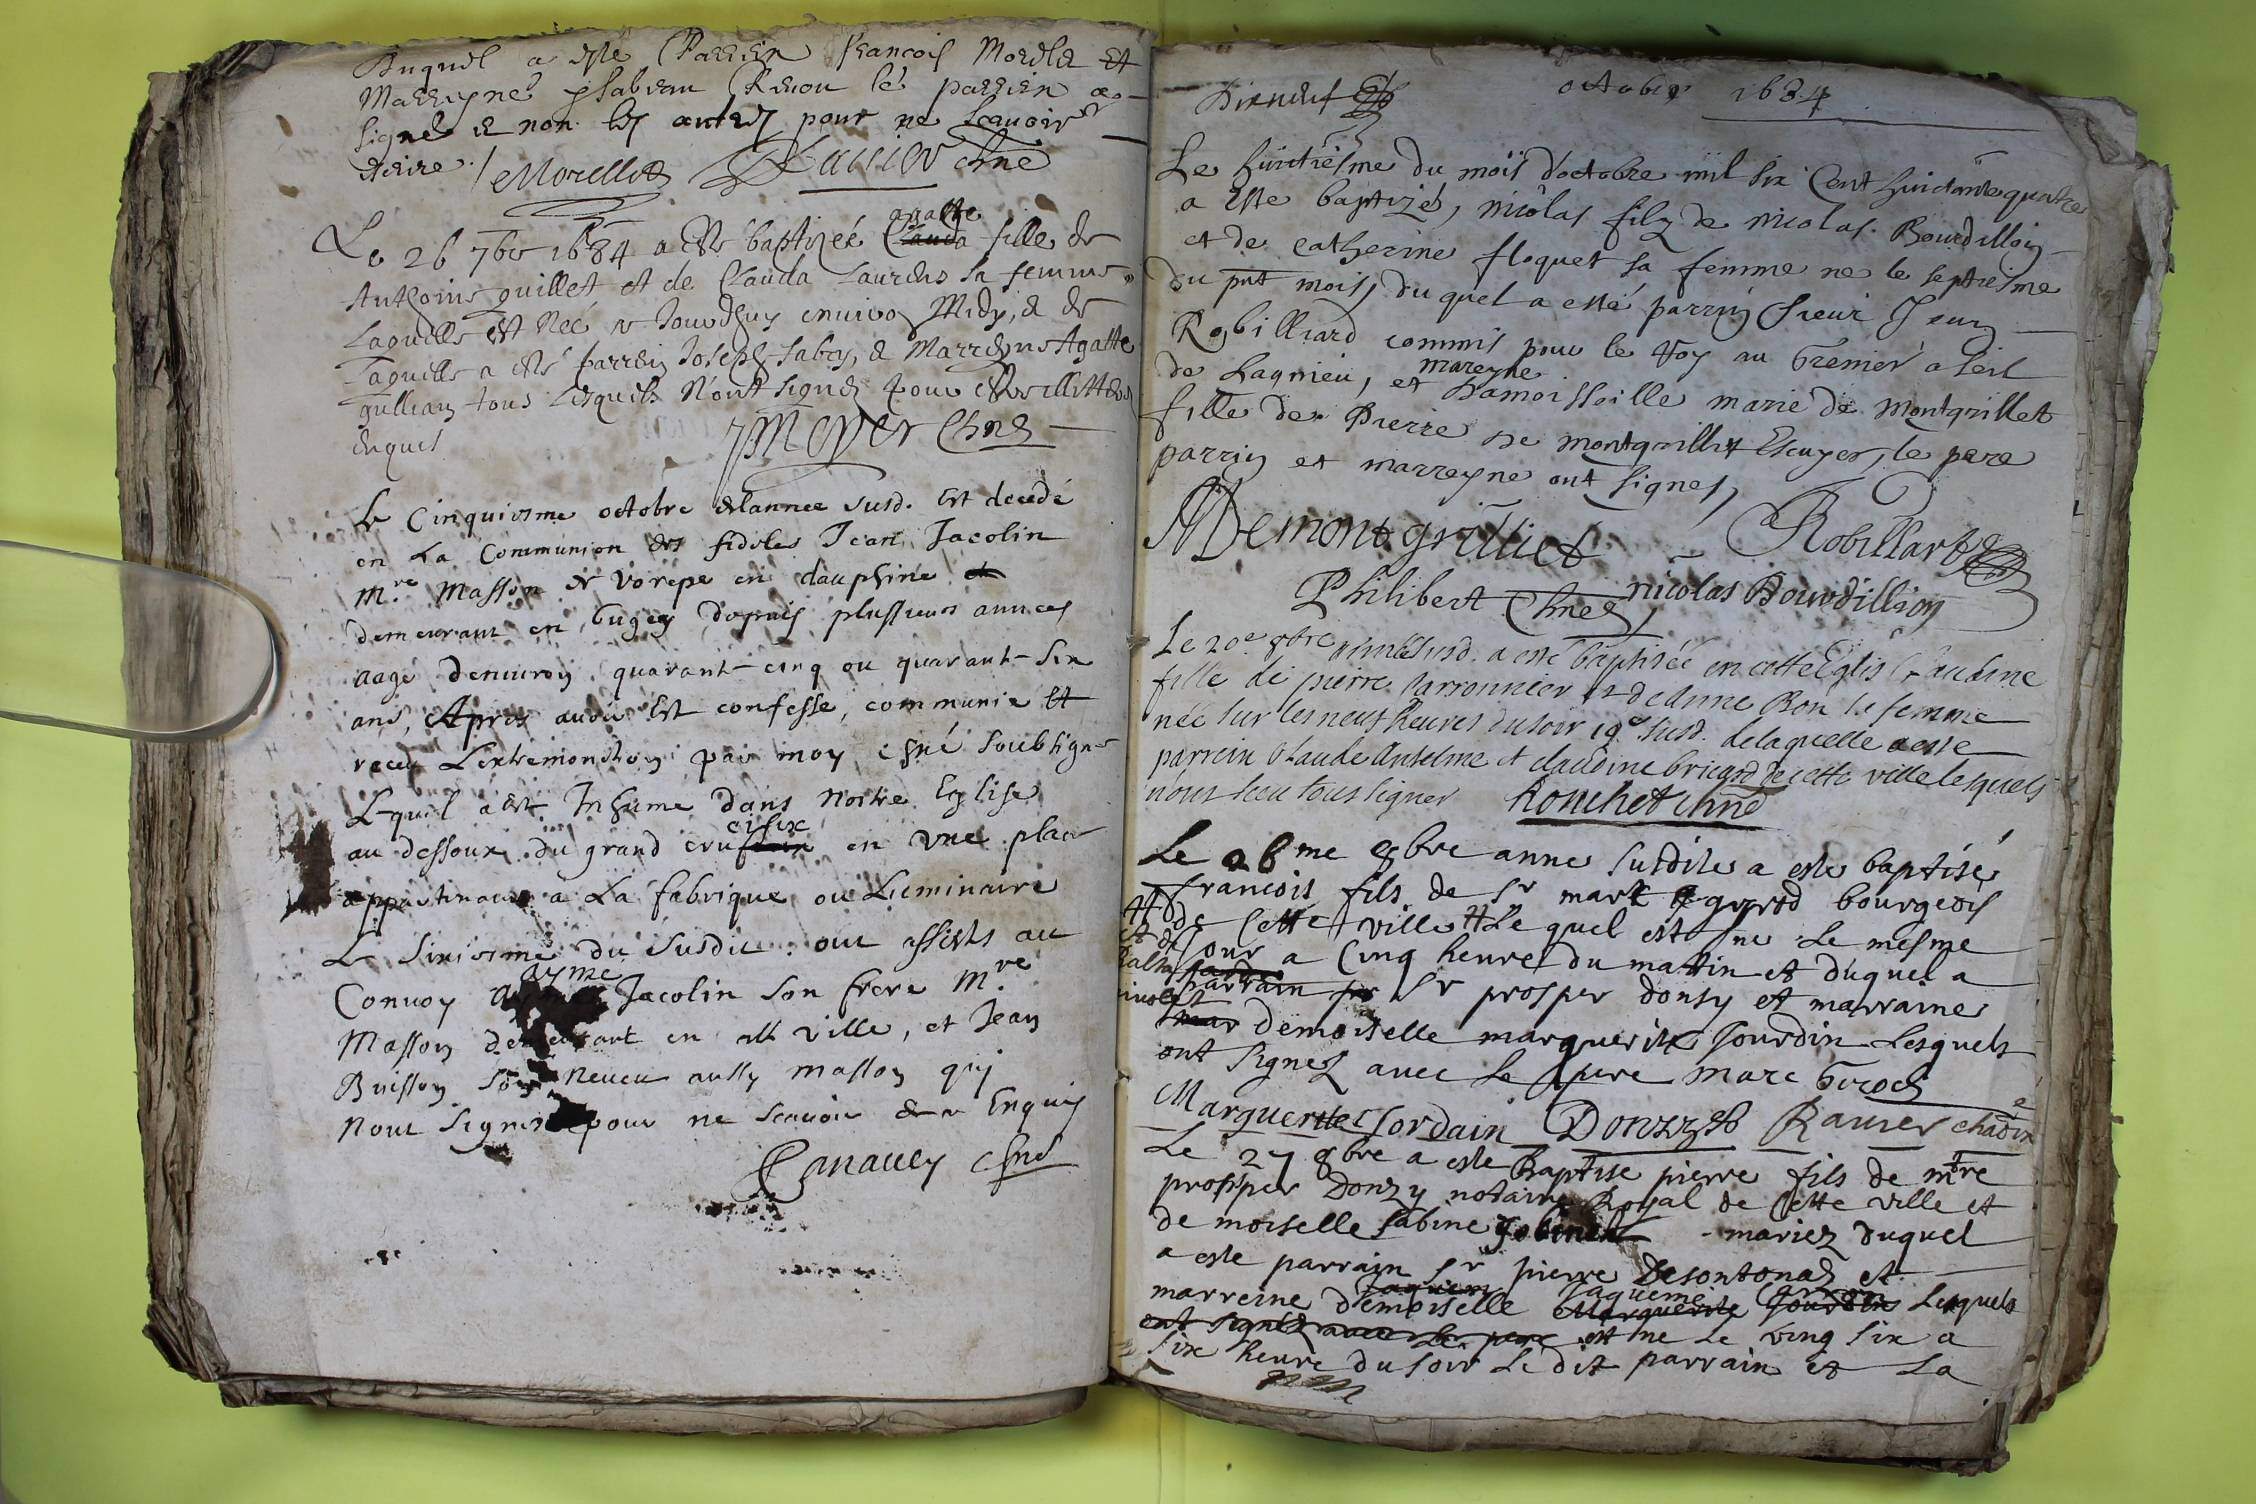 Duquel a esté Parrein François Morelet et
Marreyne ysabeau Revou le parrein a
signé e non les autres pour ne scavoir
escrire. Morellet Ravier chne
agatte
Le 26 7bre 1684 a esté baptizeé Clauda fille de
Anthoine guillet et de Clauda Laurens sa femme
Laquelle est Neé ce Jourdhuy environ Midy, & de
laquelle a esté parrein Joseph Sabry, & Marreyne Agatte
gullian tous Lesquels N'ont signez pour estre illitterez
enquis JMeyer Chne
Le Cinquiesme octobre de lannee susd. Est decedé
en La Communion des fideles Jean Jacolin
Mre Masson de Vorepe en dauphine et
demeurant en bugey depuis plussieurs annees
aagé denuiron quarant-cinq ou quarant-six
ans, Apres avoir Est confesse, communie et
receu Lextremonction par moy chne soubsigne
Lequel a est Inhume dans Nostre Eglise
cifix
au dessoux du grand cru en une place
appartenant a La fabrique ou Luminaire
Le sixiesme du susdit. ont assistes au
ayme
Convoy Jacolin son frere Mre
Masson demeurant en ville, et Jean
Buisson son Neveu aussy masson qui
Nont signer pour ne scavoir de ce Enquis
Canavey chne
Dixneuf
octobre 1684
Le huictiesme du mois d'octobre mil six Cent huictante quatre
a este baptizé, nicolas filz de nicolas Bourdillion
et de catherine floquet sa femme ne le septiesme
du pnt mois, duquel a esté parrin sieur Jean
Robilliard commis pour le Roy au Grenier a seil
mareyne
de Lagnieu, et Damoisseille marie de Montgrillet
fille de Pierre de montgrillet Escuyer, le pere
parrin et marreyne ont signes,
MDemontgrilliet Robillard
Philibert Chne nicolas Bourdillion
Le 20e 8bre année susd. a esté baptiseé en cette Eglis Claudine
fille de pierre Carronnier et de anne Bon sa femme
née sur les neuf heures du soir 19e susd. de laquelle a esté
parrein Claude Anselme et claudine bricard de cette ville lesquels
nont sceu tous signer Ronchet chne
Le 26me 8bre anne susdite a este baptisé
francois fils de sr mark girod bourgeois
de Cette ville Le quel est ne Le mesme
Jour a Cinq heure du mattin et duquel a
parrain sr prosper donzy et marraine
demoiselle marguerite Jourdin Lesquels
ont signez avec Le pere marc Girod
Marguerite Jordain Donzy Ravier
Le 27 8bre a este Baptise pierre fils de mtre
prosper Donzy notaire Royal de Cette ville et
de moiselle sabine gobinet mariez duquel
a este parrain sr pierre Desontonas et
Jaqueme
marreine demoiselle Marguerite Jourdin Lesquels
ont signez avec Le pere est ne Le vingt six a
six heure du soir Le dit parrain et La